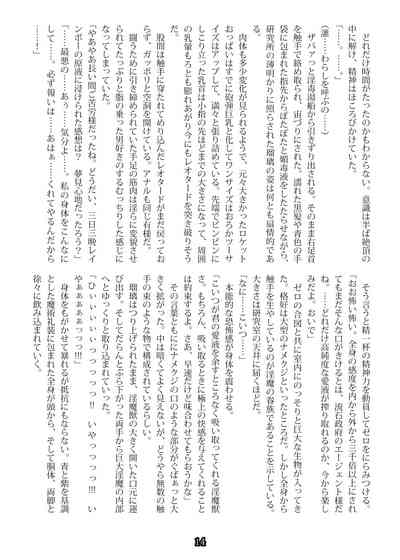 どれだけ時間がたったのかもわからない。意識は半ば絶頂の
中に解け、精神はほころびかけていた。
「……。……」
(誰……わらしを呼ぶの……)
ザバァっと淫毒湯船から引きずり出される。そのまま右足首
を触手で絡め取られ、宙づりにされた。濡れた黒髪や青色の手
袋に包まれた指先からぽたぽたと媚毒液をしたたらせながら、
研究所の薄明かりに照らされた瑠璃の姿は何とも扇情的であ
る。
肉体も多少変化が見られるようで、元々大きかったロケット
おっぱいはすでに砲弾巨乳と化してワンサイズはおろかツーサ
イズはアップして、満々と張り詰めている。先端でビンビンに
しこり立った乳首は小指の先ほどまでの大きさになって、周囲
の乳輪もろとも膨れあがり今にもレオタードを突き破りそう
だ。
股間は触手に穿たれてめり込んだレオタードがまだ戻ってお
らず、ガッポリと空洞を開けている。アナルも同じ有様だ。
闘うために引き締められていた手足の筋肉は淫らに変貌させ
られてたっぷりと脂の乗った男好きのするむっちりした感じに
なってしまっていた。
「やあやあ長い間ご苦労様だったね。どうだい、三日三晩レイ
ンボーの原液に浸けられた感想は? 夢見心地だったろう?」
「……最悪の……あう……気分よ……。私の身体をこんなに
して……。必ず報いは……あはぁ……くれてやるんだから
……!」
そう言うと精一杯の精神力を動員してゼロをにらみつける。
「おお怖い怖い。全身の感度を内から外から三千倍以上にされ
てもまだそんな口がきけるとは、流石政府のエージェント様だ
ね。……どれだけ高純度な愛液が搾り取れるのか、今から楽し
みだよ。おい」
ゼロの合図と共に室内にのっそりと巨大な生物が入ってき
た。格好は大型のナメクジといったところだ。しかし全身から
触手を生やしているのが淫魔の眷族であることを示している。
大きさは研究室の天井に届くほどだ。
「なに……こいつ……」
本能的な恐怖感が身体を震わせる。
「こいつが君の愛液を余すところなく吸い取ってくれる淫魔獣
さ。もちろん、吸い取るときに極上の快感を与えてくれること
は約束するよ。さあ、早速だけど味合わせてもらおうかな」
その言葉とともににナメクジの口のような部分がぐばぁっと大
きく拡がった。中は暗くてよく見えないが、どうやら無数の触
手の束のような物で構成されているらしい。
瑠璃はつり上げられたまま、淫魔獣の大きく開いた口元に運
び出す。そしてだらんとぶら下がった両手から巨大淫魔の内部
へとゆっくりと取り込まれていった。
「ひぃぃぃぃっっっっ!! いやっっっっ!!! い
やぁぁぁぁぁっっっ!!!」
身体をもがかせて暴れるが抵抗にもならない。青と紫を基調
とした魔術礼装に包まれた全身が頭から、そして胴体、両脚と
徐々に飲み込まれていく。
14